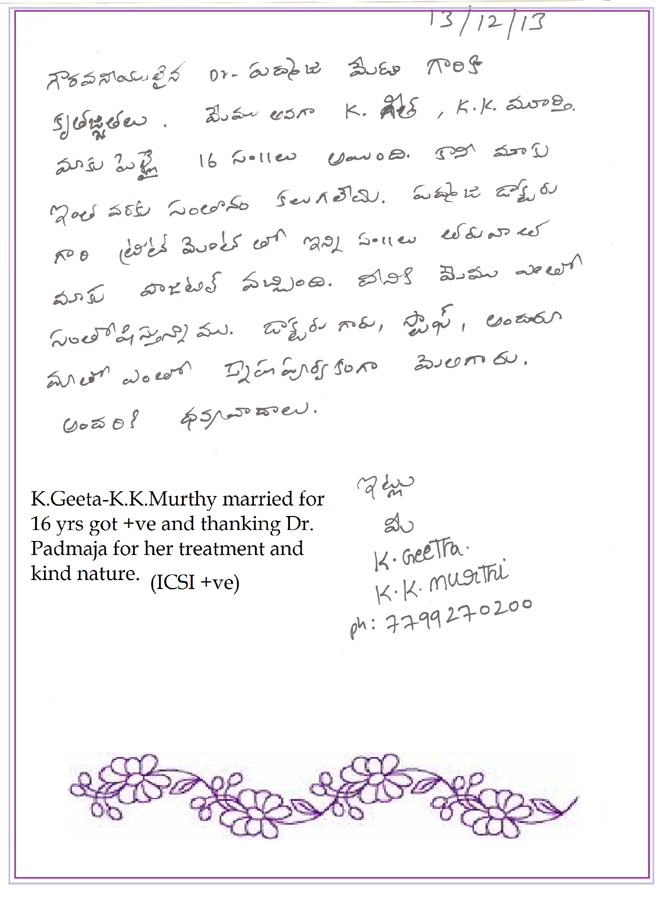 13/12/13
గౌరవనీయులైన Dr. పద్మజ మేడం గారికి
కృతజ్ఞతలు. మేము అనగా K. గీత, K.K. మూర్తి.
మాకు పెళ్లై 16 సం॥లు అయింది. కాని మాకు
ఇంత వరకు సంతానం కలుగలేదు. పద్మజ డాక్టరు
గారి ట్రీట్ మెంట్ లో ఇన్ని సం॥లు తరువాత
మాకు పాజిటివ్ వచ్చింది. దానికి మేము ఎంతో
సంతోషిస్తున్నాము. డాక్టరు గారు, స్టాఫ్, అందరూ
మాతో ఎంతో స్నేహపూర్వకంగా మెలిగారు.
అందరికి ధన్యవాదాలు.
ఇట్లు
మీ
K. Geetha.
K.K. Murthi
ph: 7799270200
K.Geeta-K.K.Murthy married for
16 yrs got +ve and thanking Dr.
Padmaja for her treatment and
kind nature. (ICSI +ve)